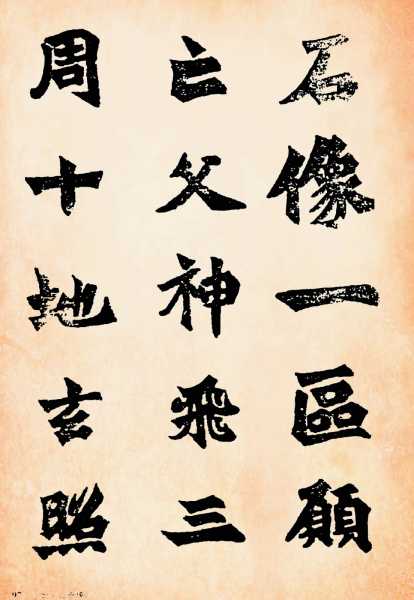 石像一區願
亡父神飛三
周十地玄照